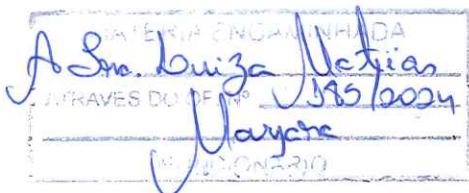 MATÉRIA ENCAMINHADA
A Sra. Luiza Matias
ATRAVÉS DO OF. Nº 185/2024
Mayara
FUNCIONÁRIO